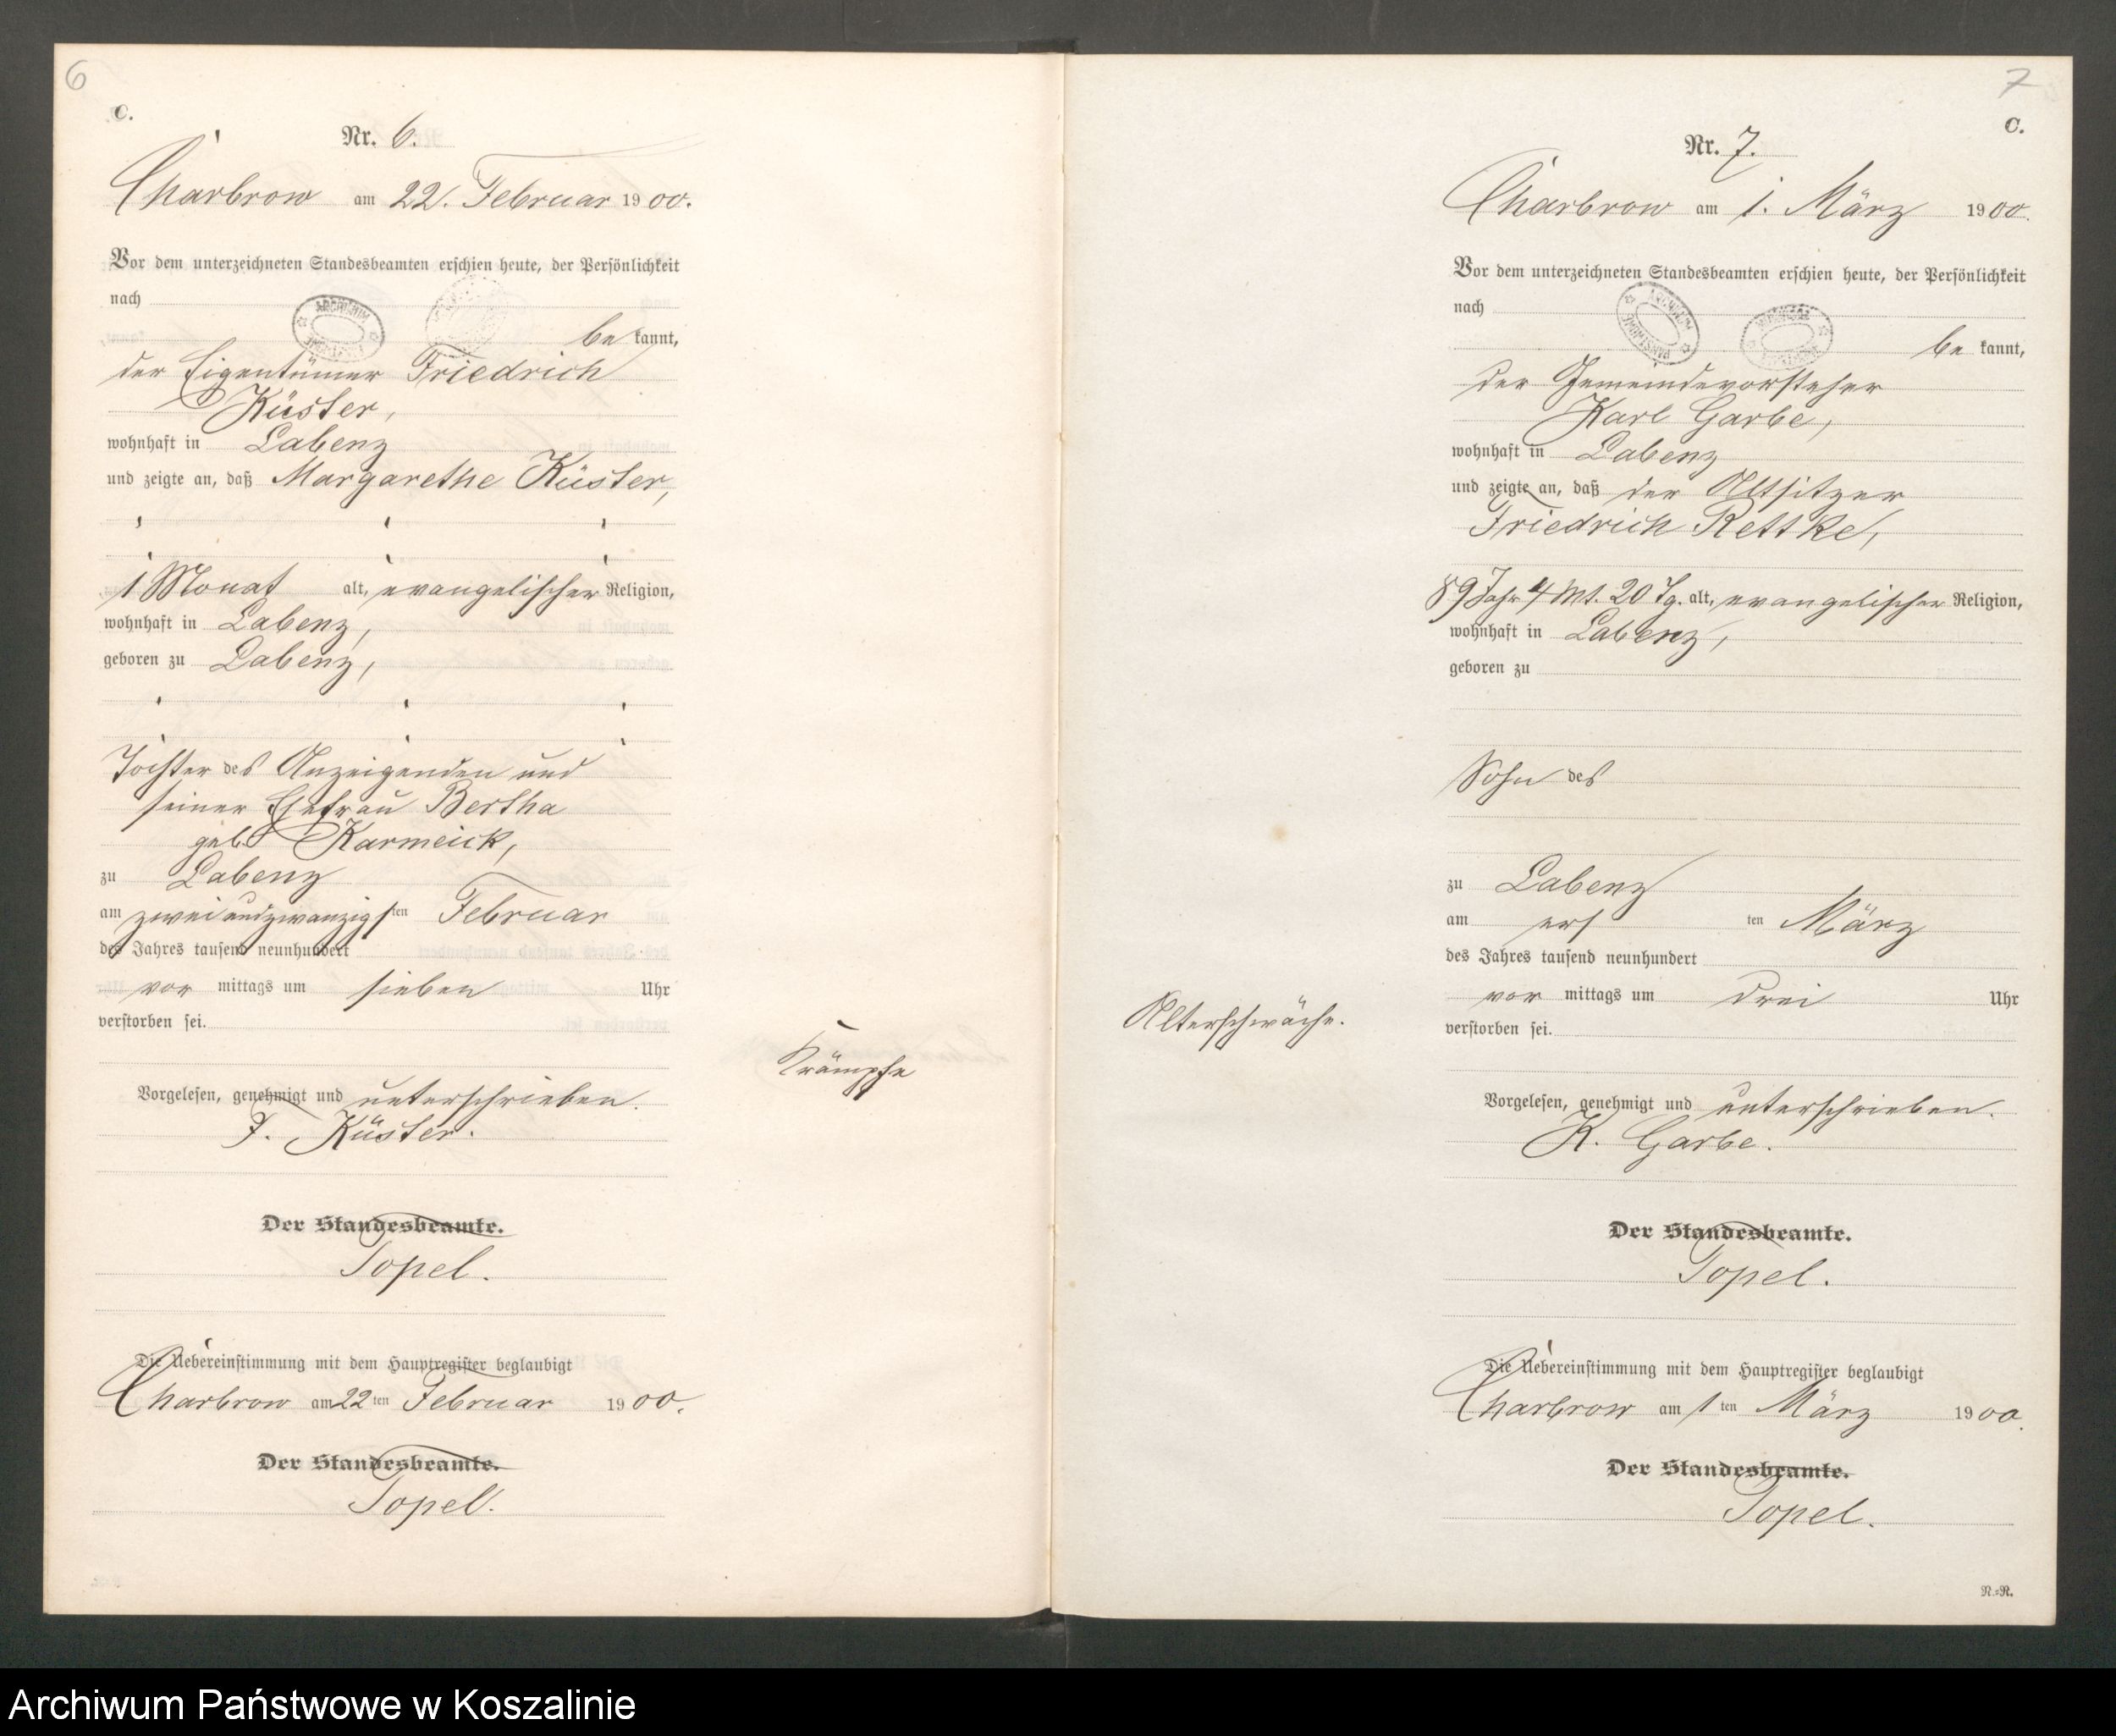 6
C.
Nr. 6.
Charbrow am 22. Februar 1900.
Vor dem unterzeichneten Standesbeamten erschien heute, der Persönlichkeit
nach
be kannt,
der Eigentümer Friedrich
Küster,
wohnhaft in Labenz
und zeigte an, daß Margarethe Küster,
1 Monat alt, evangelischer Religion,
wohnhaft in Labenz,
geboren zu Labenz,
Tochter des Anzeigenden und
seiner Ehefrau Bertha
geb. Karmeick,
zu Labenz
am zweiundzwanzigsten Februar
des Jahres tausend neunhundert
vor mittags um sieben Uhr
verstorben sei.
Krämpfe
Vorgelesen, genehmigt und unterschrieben.
F. Küster.
Der Standesbeamte.
Topel.
Die Uebereinstimmung mit dem Hauptregister beglaubigt
Charbrow am 22ten Februar 1900.
Der Standesbeamte.
Topel.
7
C.
Nr. 7.
Charbrow am 1. März 1900.
Vor dem unterzeichneten Standesbeamten erschien heute, der Persönlichkeit
nach
ARCHIWUM
be kannt,
der Gemeindevorsteher
Karl Garbe,
wohnhaft in Labenz
und zeigte an, daß der Altsitzer
Friedrich Rettke,
89 Jahr 4 Mt. 20 Tg. alt, evangelischer Religion,
wohnhaft in Labenz,
geboren zu
Sohn des
zu Labenz
am ersten März
des Jahres tausend neunhundert
vor mittags um drei Uhr
Altersschwäche.
verstorben sei.
Vorgelesen, genehmigt und unterschrieben.
K. Garbe.
Der Standesbeamte.
Topel.
Die Uebereinstimmung mit dem Hauptregister beglaubigt
Charbrow am 1ten März 1900.
Der Standesbeamte.
Topel.
N.=R.
Archiwum Państwowe w Koszalinie